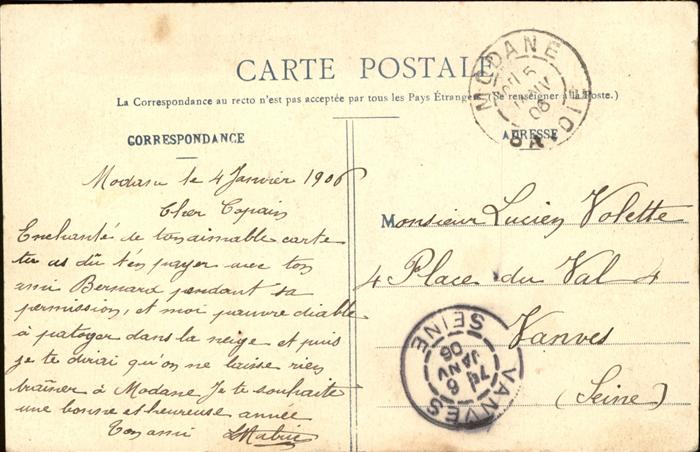 CARTE POSTALE
La Correspondance au recto n'est pas acceptée par tous les Pays Étrangers (Se renseigner à la Poste.)
CORRESPONDANCE
Modane le 4 Janvier 1906
Cher Copain
Enchanté de ton aimable carte
tu as dû t'en payer avec ton
ami Bernard pendant sa
permission, et moi pauvre diable
à patoger dans la neige et puis
je te dirai qu'on ne laisse rien
traîner à Modane Je te souhaite
une bonne et heureuse année
Ton ami
ADRESSE
Monsieur Lucien Volette
4 Place du Val 4
Vanves
(Seine)
MODANE
5
JANV
06
VANVES
SEINE
7
6
JANV
06